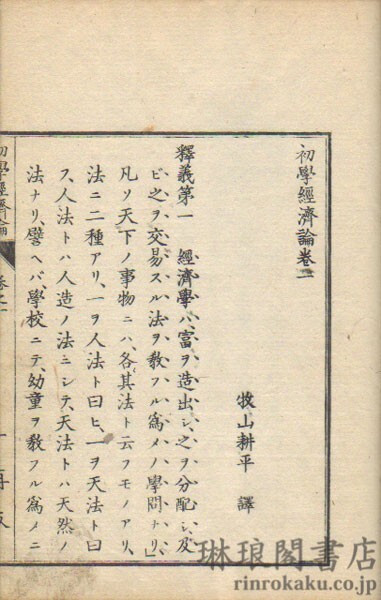 初學經濟論卷一
牧山耕平 譯
釋義第一 經濟學ハ、富ヲ造出シ、之ヲ分配シ、及
ビ之ヲ交易スル法ヲ教フル爲メノ學問ナリ、」
凡ソ天下ノ事物ニハ、各其法ト云フモノアリ、
法ニ二種アリ、一ヲ人法ト曰ヒ、一ヲ天法ト曰
ス、人法トハ人造ノ法ニシテ、天法トハ天然ノ
法ナリ、譬ヘバ、學校ニテ、幼童ヲ教フル爲メニ
初學經濟論
琳琅閣書店
rinrokaku.co.jp